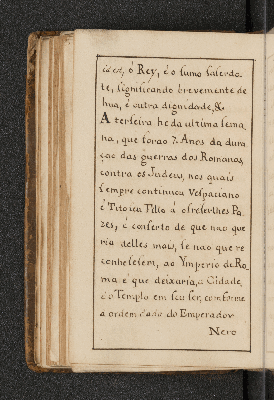 id est, ó Rey, é o sumo Saserdo-
te, significando brevemente de
hua, é outra dignidade, &.
A terseira he da ultima sema
na, que forao 7. Anos da dura
çao das guerras dos Romanos,
contra os Judeus, nos quais
sempre continuou Vespaciano
é Tito seu filho á ofreserlhes Pa
zes, é conserto de que nao que
ria delles mais, se nao que re
conhesesem, ao Ymperio de Ro
ma é que deixaria, a Cidade,
é o Templo em seu ser, comforme
a ordem dada do Emperador
Nero